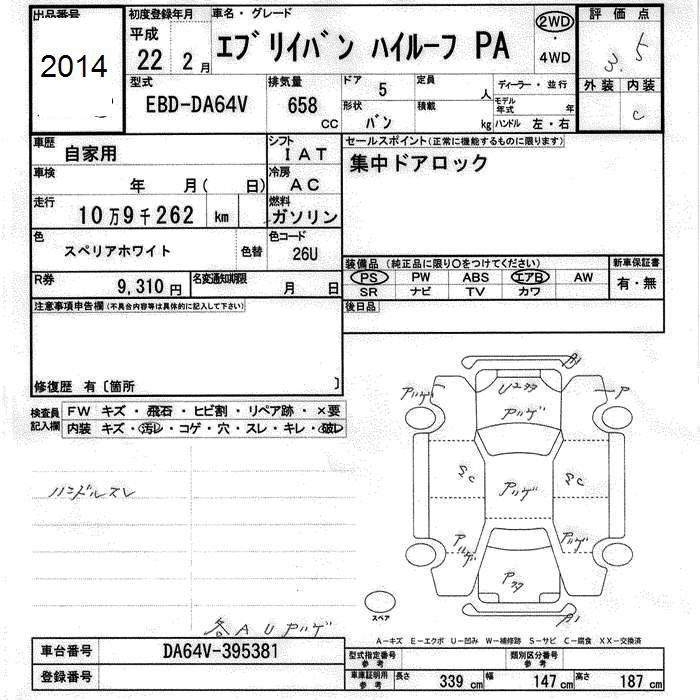 出品番号
2014
初度登録年月
平成
22年 2月
車名・グレード
エブリイバン ハイルーフ PA
2WD
・
4WD
評価点
3.5
外装 内装
C
型式
EBD-DA64V
排気量
658
CC
ドア 5
定員 人
ディーラー・並行
モデル年式 年
形状 バン
積載 kg
ハンドル 左・右
車歴 自家用
シフト IAT
セールスポイント(正常に機能するものに限ります)
集中ドアロック
車検 年 月( 日)
冷房 AC
走行 10万9千262 km
燃料 ガソリン
色 スペリアホワイト 色替
色コード 26U
装備品(純正品に限り○をつけてください)
PS PW ABS エアB AW
SR ナビ TV カワ
新車保証書
有・無
R券 9,310円
名変通知期限 月 日
後日品
注意事項申告欄(不具合内容等は具体的に記入して下さい)
修復歴 有〔箇所 〕
検査員記入欄
FW キズ・飛石・ヒビ割・リペア跡・×要
内装 キズ・汚レ・コゲ・穴・スレ・キレ・破レ
ハンドルスレ
A1
アハゲ
Uコタ
アハゲ
ア
アハゲ
アハゲ
アハゲ
A1
スペア
各AUアハゲ
A−キズ E−エクボ U−凹み W−補修跡 S−サビ C−腐食 XX−交換済
車台番号 DA64V-395381
型式指定番号 参考
類別区分番号 参考
登録番号
車庫証明用 参考
長さ 339 cm 幅 147 cm 高さ 187 cm